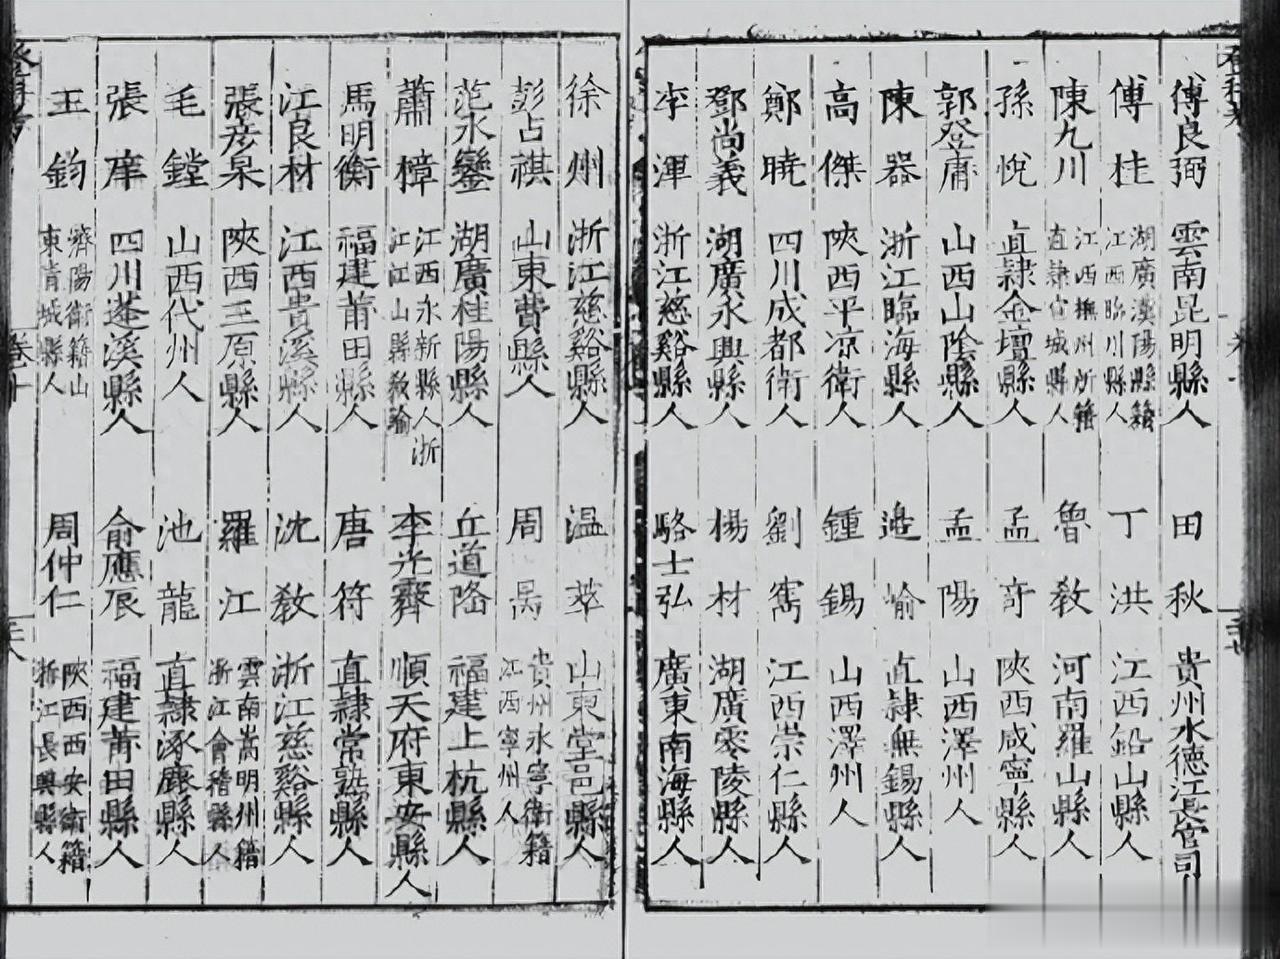 傅良弼 雲南昆明縣人 田秋 貴州水德江長官司
傅桂 湖廣漢陽縣籍江西臨川縣人 丁洪 江西鉛山縣人
陳九川 江西撫州所籍直隸宣城縣人 魯教 河南羅山縣人
孫悅 直隸金壇縣人 孟奇 陝西咸寧縣人
郭登庸 山西山陰縣人 孟陽 山西澤州人
陳器 浙江臨海縣人 邊愉 直隸無錫縣人
高傑 陝西平凉衛人 鍾錫 山西澤州人
鄭曉 四川成都衛人 劉雋 江西崇仁縣人
鄧尚義 湖廣永興縣人 楊材 湖廣零陵縣人
李渾 浙江慈谿縣人 駱士弘 廣東南海縣人
徐州 浙江慈谿縣人 温萃 山東堂邑縣人
彭占祺 山東費縣人 周昺 貴州永寧衛籍江西寧州人
范永鑾 湖廣桂陽縣人 丘道隆 福建上杭縣人
蕭樟 江西永新縣人浙江江山縣教諭 李光霽 順天府東安縣人
馬明衡 福建莆田縣人 唐符 直隸常熟縣人
江良材 江西貴溪縣人 沈教 浙江慈谿縣人
張彦杲 陝西三原縣人 羅江 雲南嵩明州籍浙江會稽縣人
毛鏜 山西代州人 池龍 直隸涿鹿縣人
張庠 四川蓬溪縣人 俞應辰 福建莆田縣人
王鈞 濟陽衛籍山東肓城縣人 周仲仁 陝西西安衛籍浙江長興縣人
卷十